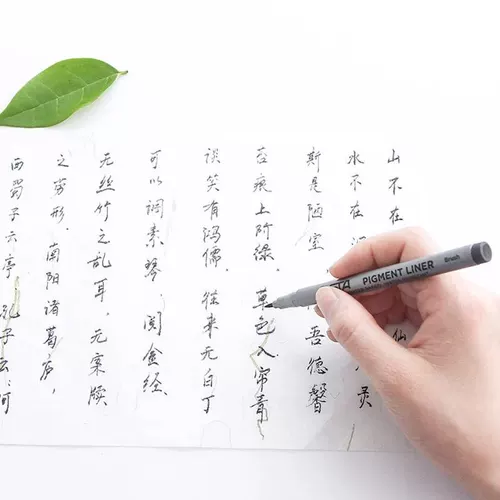 山不在
水不在
斯是陋室 吾德馨
苔痕上阶绿，草色入帘青
谈笑有鸿儒，往来无白丁
可以调素琴 阅金经
无丝竹之乱耳，无案牍
之劳形，南阳诸葛庐，
西蜀子云亭 孔子云：何
仙
灵
PIGMENT LINER
Brush